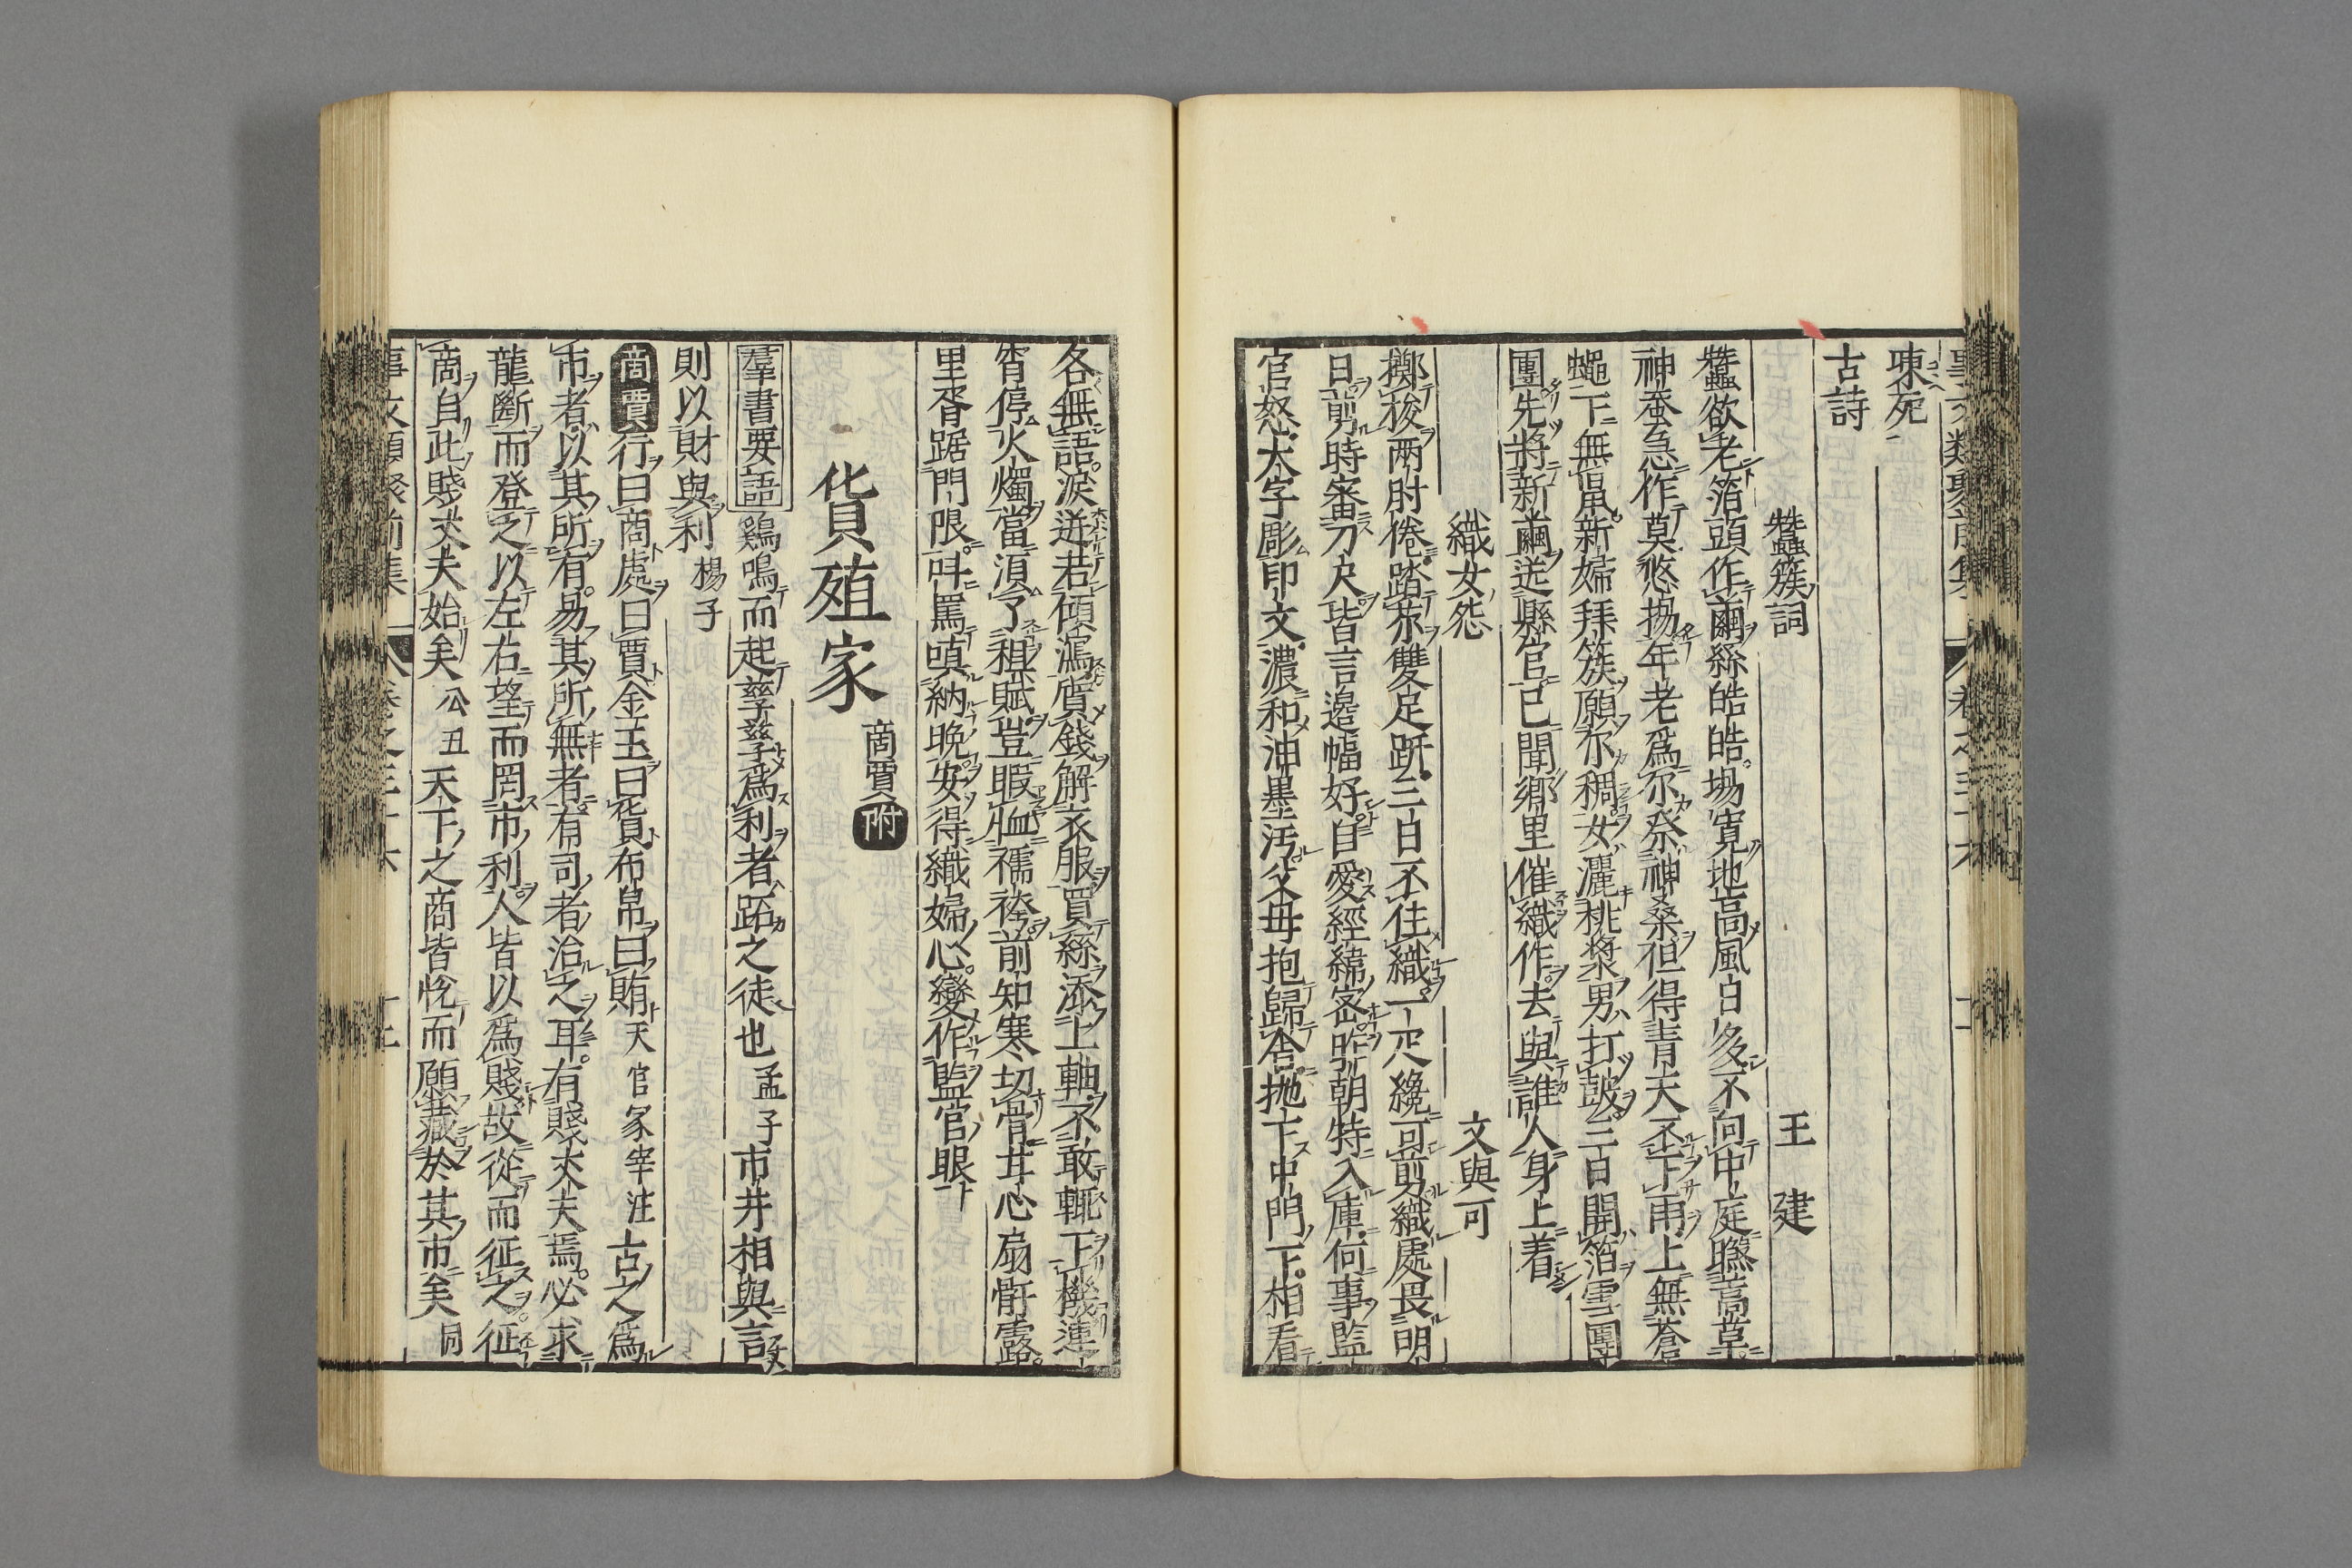 凍死
古詩
蠶簇詞 王建
蠶欲老箔頭作繭絲皓皓場寬地高風日多不向中庭曬蒿草
神蚕急作莫悠揚年老爲尔祭神桒但得青天不下雨上無蒼
蠅下無鼠新婦拜簇願尓稠女灑桃漿男打皷三日開箔雪團
團先將新繭送縣官已聞鄉里催織作去與誰人身上着
織女怨 文與可
擲梭兩肘倦踏茶雙足趼三日不住織一疋纔可剪織處畏
日剪時審刀尺皆言邊幅好自愛經緯密昨朝特入庫何事監
官怒大字彫印文濃和油墨汚父母抱歸舍抛下中門下相看
各無語淚迸若傾瀉質錢解衣服買絲添上軸不敢輒下機連
宵停火燭當湏了租賦豈暇恤襦袴前知寒切骨甘心扇骭露
里胥踞門限呌罵嗔納晩安得織婦心變作監官眼
貨殖家 商賈附
羣書要語 鷄鳴而起孳孳爲利者跖之徒也孟子市井相與言
則以財與利 楊子
商賈 行曰商處曰賈金玉曰貨布帛曰賄天官冢宰注古之爲
市者以其所有易其所無者有司者治之耳有賤丈夫焉必求
龍斷而登之以左右望而罔市利人皆以爲賤故從而征之征
商自此賤丈夫始矣公丑天下之商皆悅而願藏於其市矣同